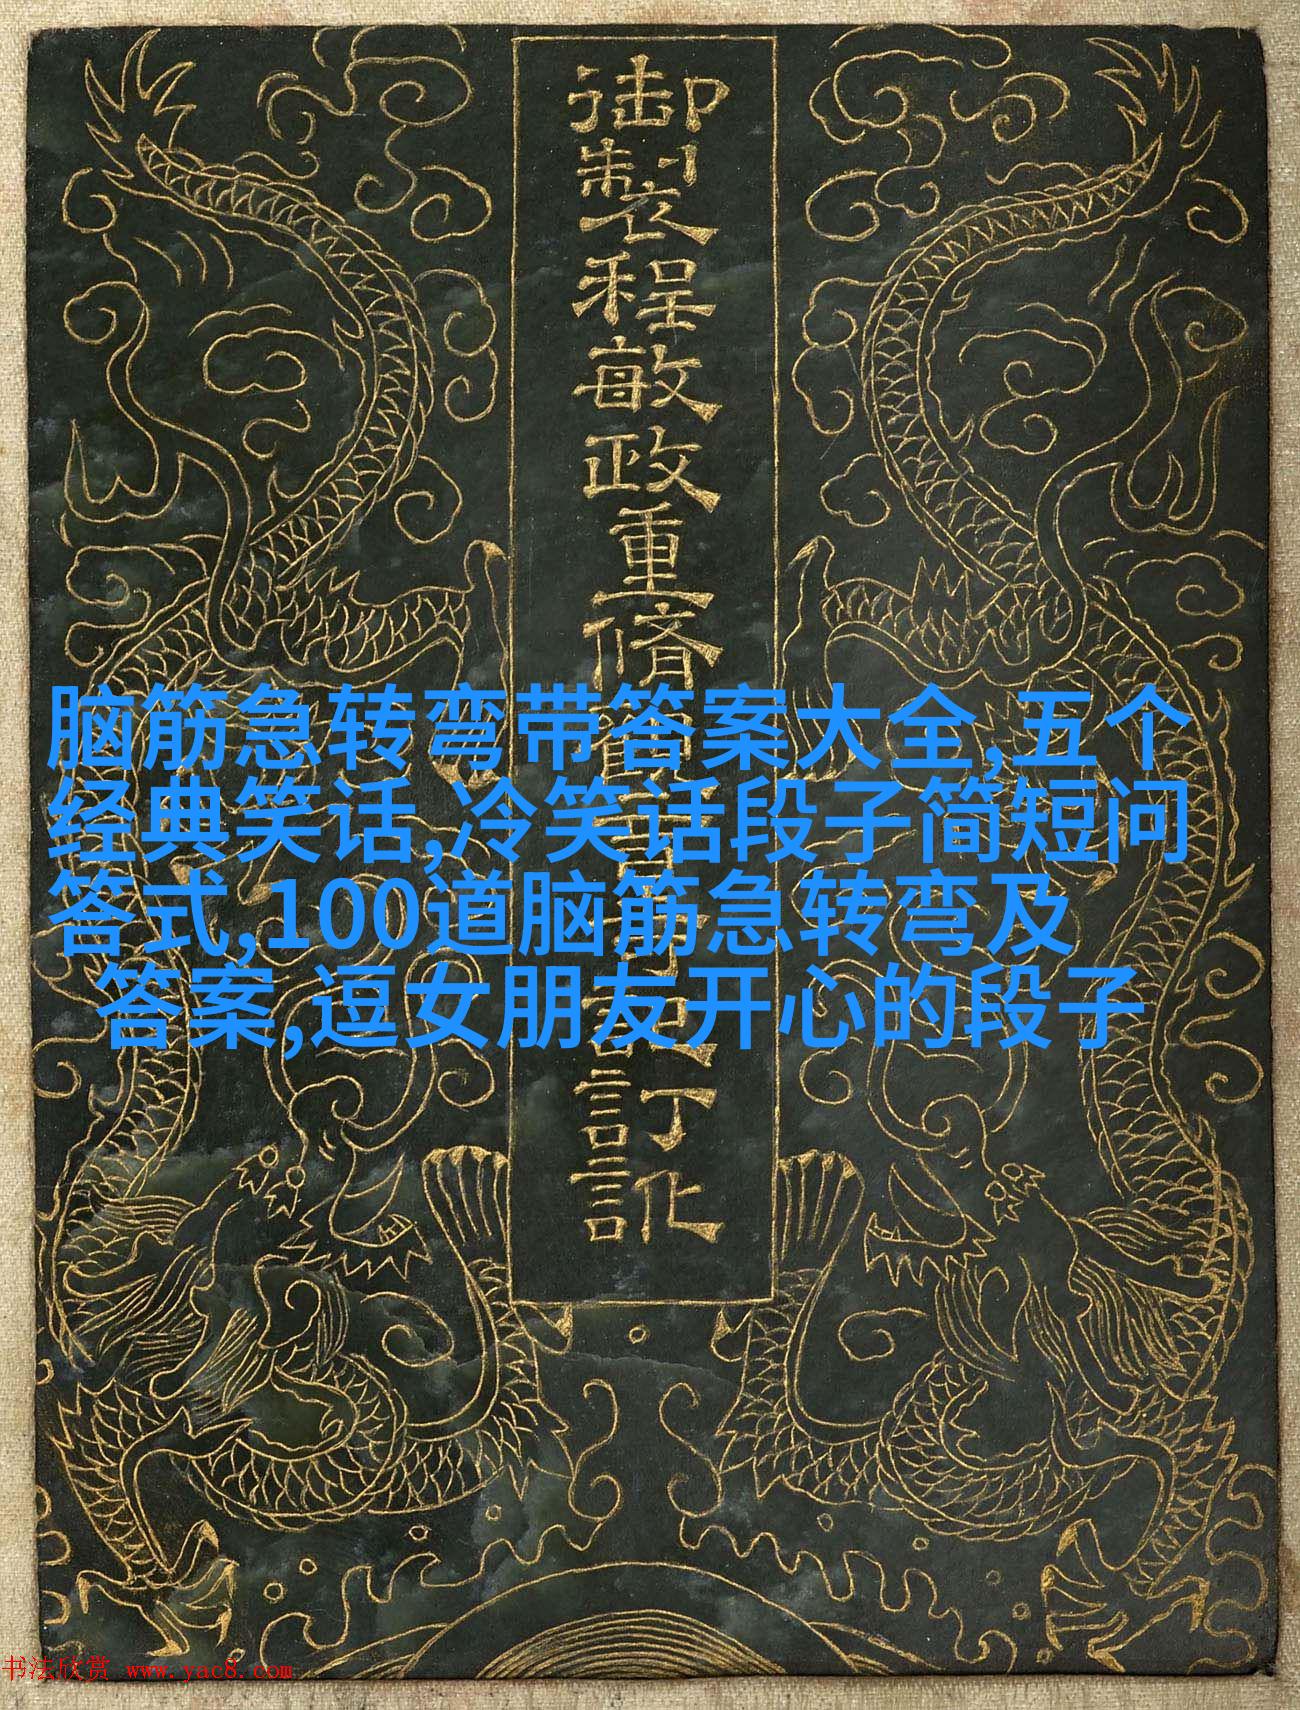 御製程敏政重脩訂訛
脑筋急转弯带答案大全,五个
经典笑话,冷笑话段子简短问
答式,100道脑筋急转弯及
答案,逗女朋友开心的段子
书法欣赏 www.yac8.com